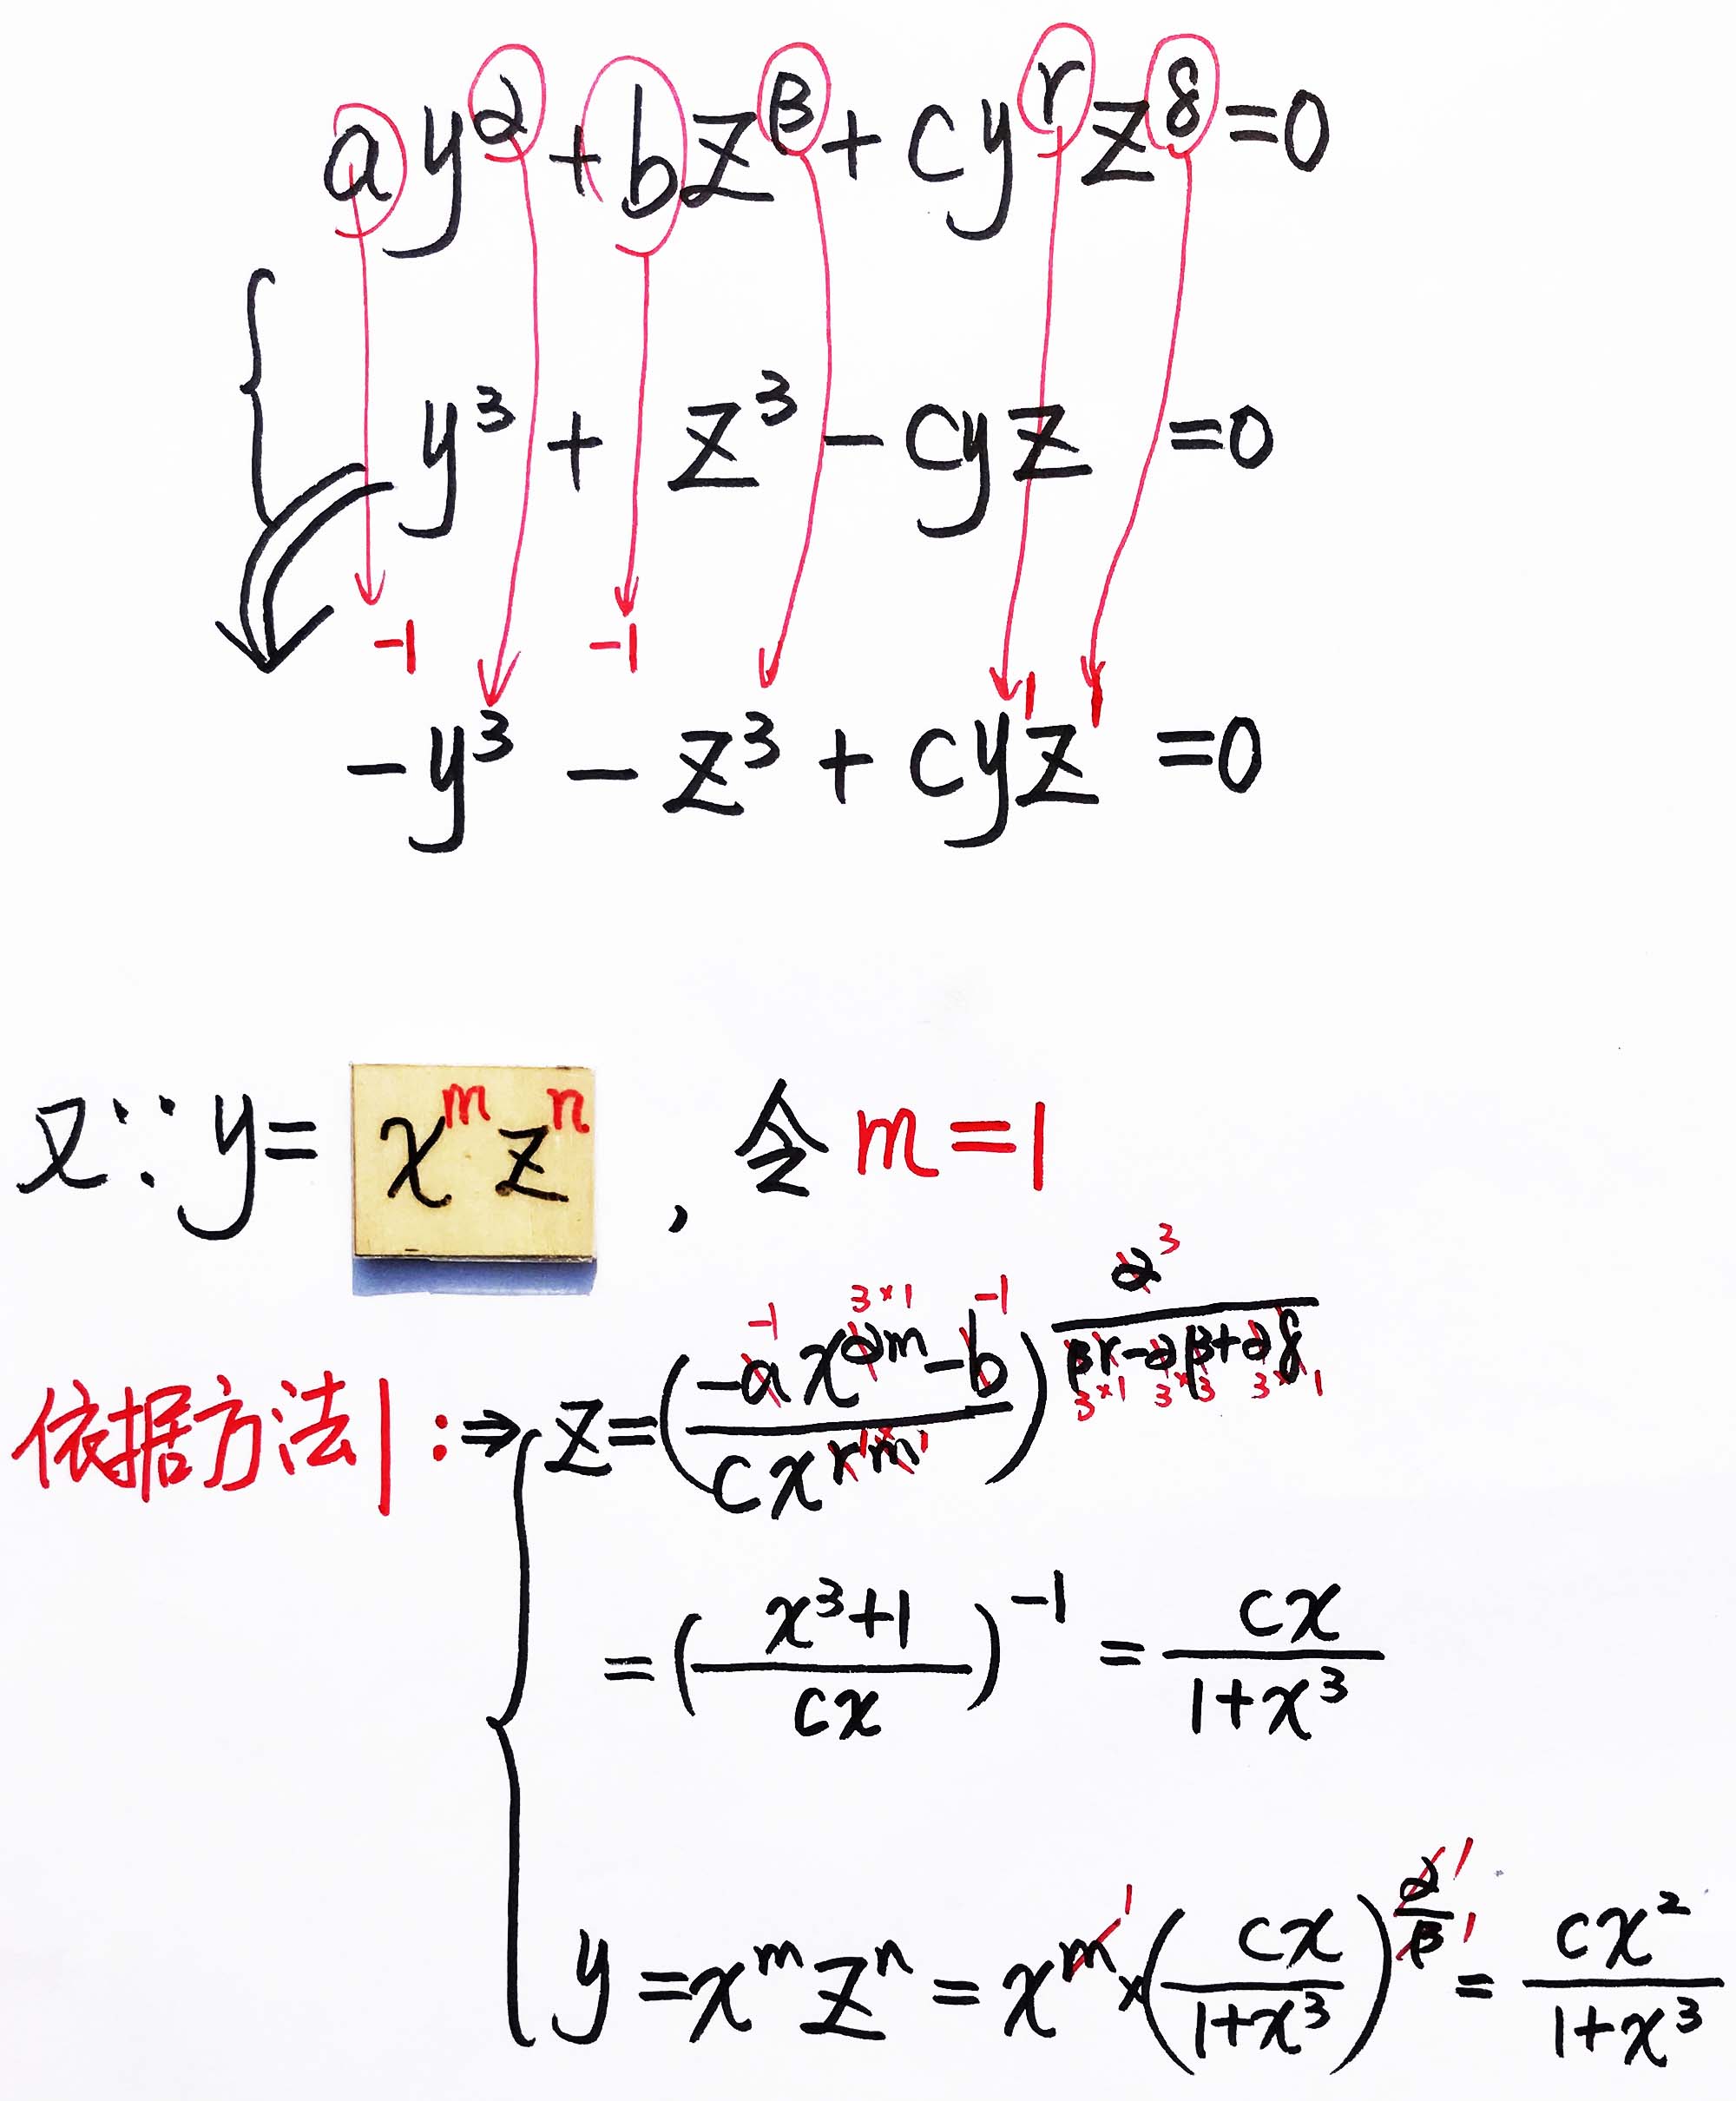 ay^α + bz^β + cy^γ z^δ = 0
y³ + z³ - cyz = 0
-1 -1 1 1
-y³ - z³ + cyz = 0
又∵ y = x^m z^n , 令 m = 1
依据方法1: ⇒ z = ((-ax^(αm) - b)/(cx^(γm)))^(α/(βγ-αβ+αδ))
-1 3×1 -1 3 3×1 3×3 3×1 1×1
= ((x³+1)/(cx))^(-1) = cx/(1+x³)
y = x^m z^n = x^m × (cx/(1+x³))^(α/β) = cx²/(1+x³)
1 1 1